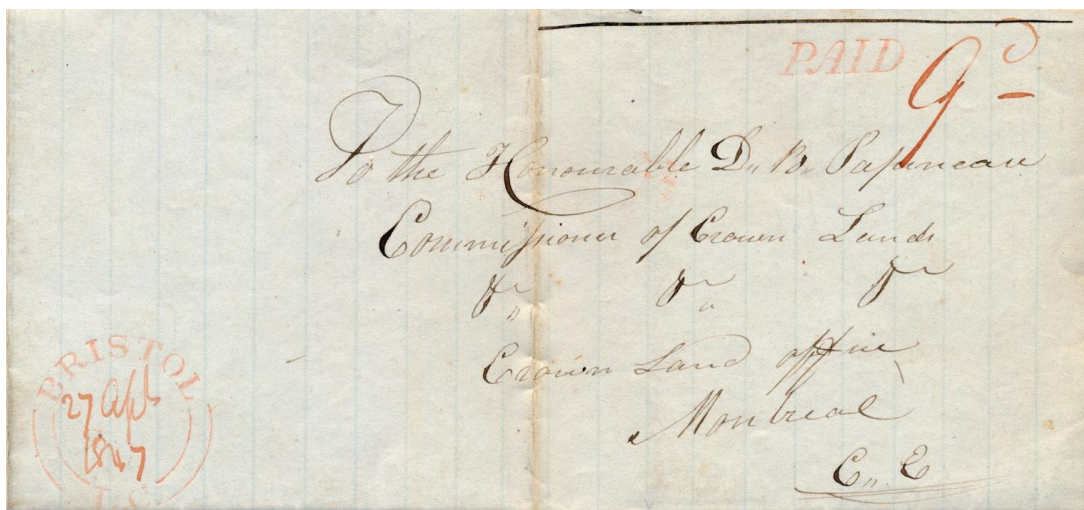 PAID 9d
To the Honourable D„ B„ Papineau
Commissioner of Crown Lands
&c„ &c„ &c
Crown Land office
Montreal
C„ E
BRISTOL
27 Apl
1847
L.C